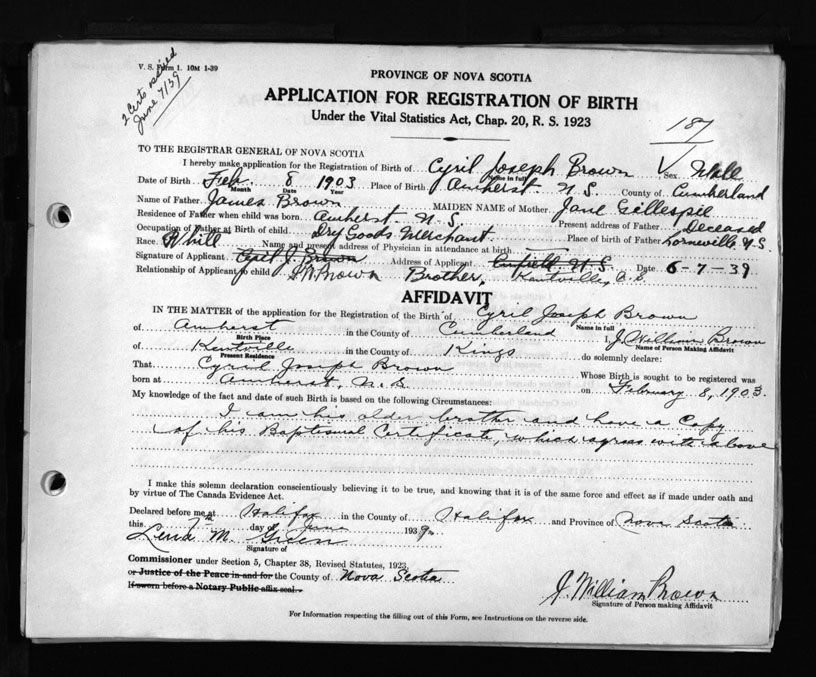 V. S. Form 1. 10M 1-39
2 Certs issued
June 7/39
PROVINCE OF NOVA SCOTIA
APPLICATION FOR REGISTRATION OF BIRTH
Under the Vital Statistics Act, Chap. 20, R. S. 1923
187
TO THE REGISTRAR GENERAL OF NOVA SCOTIA
I hereby make application for the Registration of Birth of Cyril Joseph Brown Sex Male
Name in full
Date of Birth Feb. 8 1903 Place of Birth Amherst N.S. County of Cumberland
Month Date Year
Name of Father James Brown MAIDEN NAME of Mother Jane Gillespie
Residence of Father when child was born Amherst N.S. Present address of Father Deceased
Occupation of Father at Birth of child Dry Goods Merchant Place of birth of Father Lorneville N.S.
Race. White Name and present address of Physician in attendance at birth
Signature of Applicant Cyril J. Brown Address of Applicant Enfield N.S. Date 6-7-39
Relationship of Applicant to child J.W. Brown Brother, Kentville,
AFFIDAVIT
IN THE MATTER of the application for the Registration of the Birth of Cyril Joseph Brown
Name in full
of Amherst in the County of Cumberland I, J. William Brown
Birth Place Name of Person Making Affidavit
of Kentville in the County of Kings do solemnly declare:
Present Residence
That Cyril Joseph Brown Whose Birth is sought to be registered was
born at Amherst, N.S. on February 8, 1903.
My knowledge of the fact and date of such Birth is based on the following Circumstances:
I am his older brother and have a Copy
of his Baptismal Certificate, which agrees with above
I make this solemn declaration conscientiously believing it to be true, and knowing that it is of the same force and effect as if made under oath and
by virtue of The Canada Evidence Act.
Declared before me at Halifax in the County of Halifax and Province of Nova Scotia
this 7th day of June 1939
Lena M. Green
Signature of
Commissioner under Section 5, Chapter 38, Revised Statutes, 1923
or Justice of the Peace in and for the County of Nova Scotia
If sworn before a Notary Public affix seal.
J. William Brown
Signature of Person making Affidavit
For Information respecting the filling out of this Form, see Instructions on the reverse side.